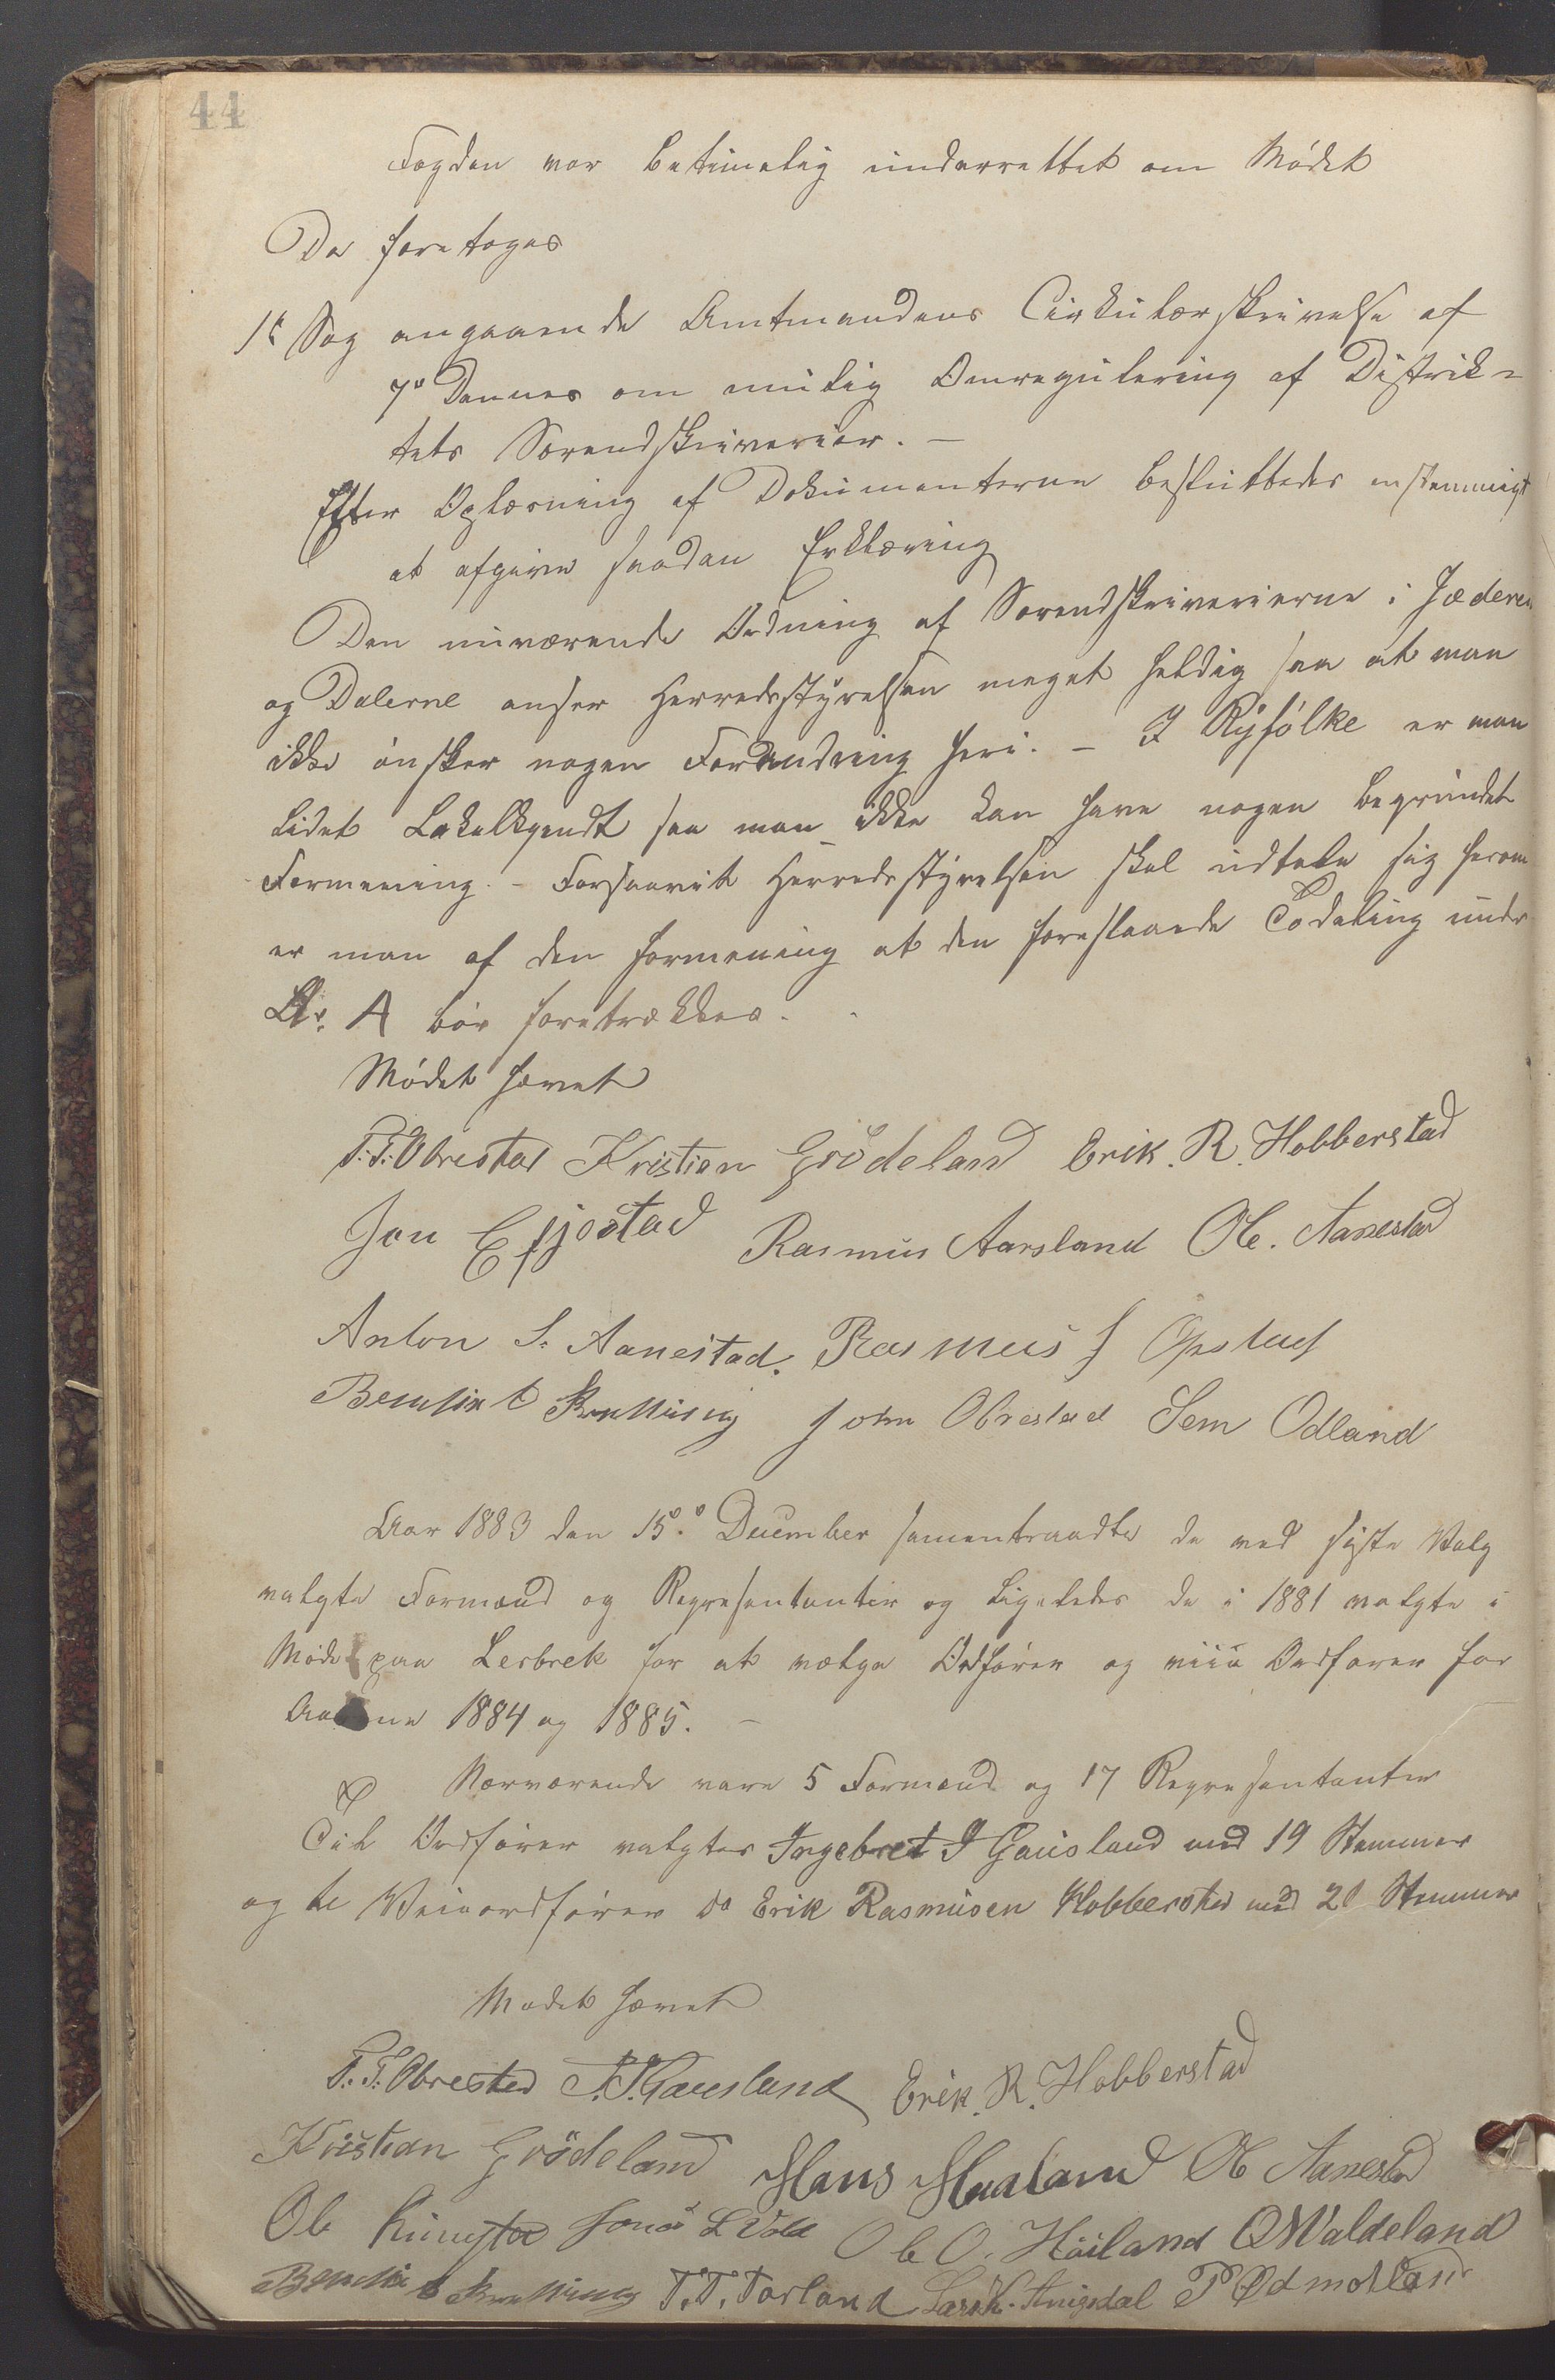 44
Fogden var betimelig underrettet om Mødet
Da foretoges
1ˢ Sag angaaende Amtmandens Cirkulærskrivelse af
7ᵈ Dennes om mulig Omregulering af Distrik-
tets Sorendskriverier. –
Efter Oplæsning af Dokumenterne besluttedes enstemmigt
at afgive saadan Erklæring
Den nuværende Ordning af Sorendskriverierne i Jæderen
og Dalerne anser Herredsstyrelsen meget heldig saa at man
ikke ønsker nogen Forandring heri. – I Ryfølke er man
lidet Lokalkjendt saa man ikke kan have nogen begrundet
Formening. – Forsaavit Herredsstyrelsen skal udtale sig herom
er man af den formening at den foreslaaede Todeling under
Ltr. A bør foretrækkes.
Mødet hævet
T. T. Obrestad Kristian Grödeland Erik. R. Hobberstad
Jon Efjestad Rasmus Aarsland Ole. Aanestad
Anton S. Aanestad. Rasmus J Opstad
John Obrestad Sem Odland
Aar 1883 den 15.º December sammentraadte de ved siste Valg
valgte Formænd og Repræsentanter og ligeledes de i 1881 valgte i
Møde paa Lerbrek for at vælge Ordfører og viise Ordfører for
Aarene 1884 og 1885. –
Nærværende vare 5 Formænd og 17 Repræsentanter
Til Ordfører valgtes Ingebret I Gausland med 19 Stemmer
og te Viceordfører do Erik Rasmusen Hobberstad med 20 Stemmer
Mødet hævet
T. T. Obrestad I. I. Gausland Erik. R. Hobberstad
Kristian Grödeland Hans Haaland Ole Aanestad
Ole Jonas L Vold Ole O. Höiland O Waldeland
T. T. Torland Lars K. P Ødmotland